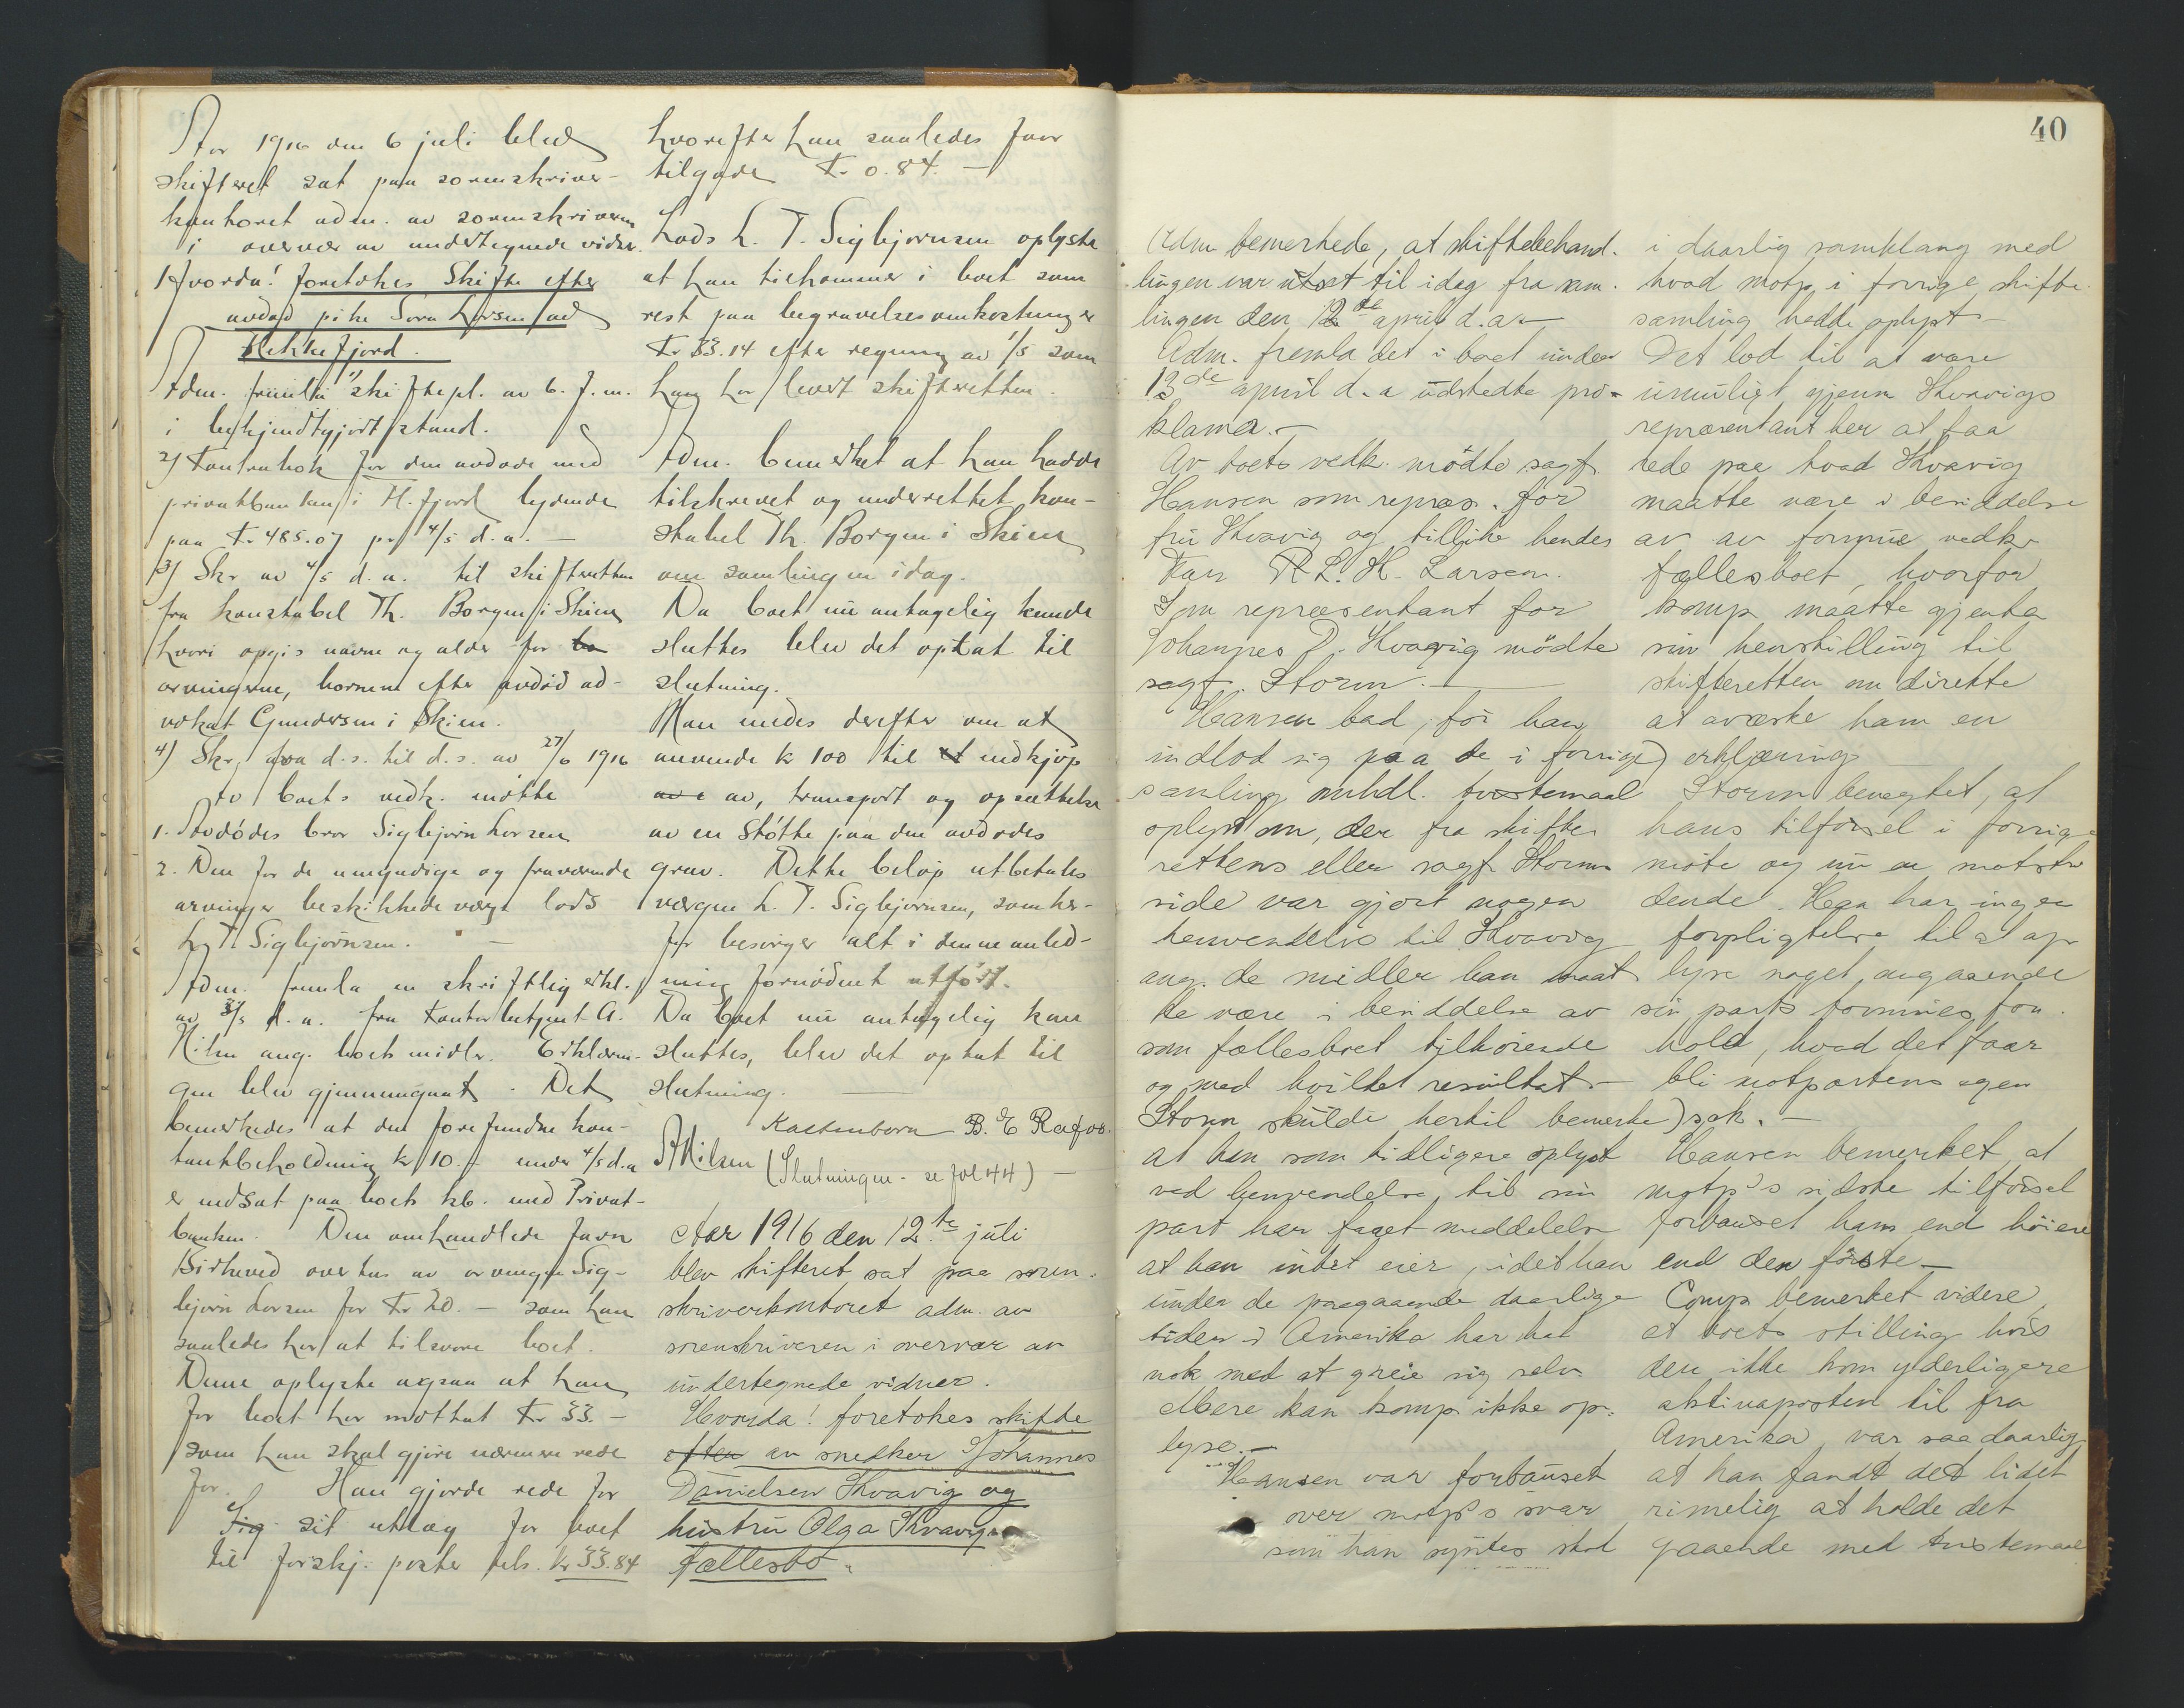 Aar 1916 den 6 juli blev
skifteret sat paa sorenskriver-
kontoret adm. av sorenskriveren
i overvær av undertegnede vidner.
Hvorda! foretokes Skifte efter
avdød pike Sara Larsen
Flekkefjord.
Adm. fremla 1) skiftepl. av 6. f.m.
i bekjendtgjort stand.
2) Kontrabok for den avdøde med
privatbanken i Fl.fjord lydende
paa Kr 485.07 pr 4/5 d.a. —
3) Skr av 4/5 d.a. til skifteretten
fra konstabel Th. Borgen i Skien
hvori opgis navne og alder for
arvingerne, børnene efter avdød ad-
vokat Gundersen i Skien.
4) Skr. fra d.s. til d.s. av 27/6 1916
Av boets vedk. møtte
1. Avdødes bror Sigbjørn Larsen
2. Den for de umyndige og fraværende
arvinger beskikkede verge lods
L. T. Sigbjørnsen. —
Adm. fremla en skriftlig erkl.
av 3/5 d.a. fra Kontorbetjent A.
Nilsen ang. boets midler. Erklærin-
gen blev gjennemgaat. Det
bemerkedes at den forefundne kon-
tantbeholdning kr 10.- under 4/5 d.a
er indsat paa boets kb. med Privat-
banken. Den omhandlede favn
Birkeved overtas av arvingen Sig-
bjørn Larsen for Kr 20. — som han
saaledes har at tilsvare boet.
Denne oplyste ogsaa at han
for boet har mottat Kr 33. —
som han skal gjøre nærmere rede
for. Han gjorde rede for
Sig sit utlæg for boet
til forskj. poster tils. kr 33.84
hvorefter han saaledes faar
tilgode Kr 0.84. —
Lods L. T. Sigbjørnsen oplyste
at han tilkommer i boet som
rest paa begravelsesomkostninger
Kr 33.14 efter regning av 1/5 som
han har levert skifteretten.
Adm. bemerket at han hadde
tilskrevet og underrettet kon-
stabel Th. Borgen i Skien
om samlingen idag.
Da boet nu antagelig kunde
sluttes blev det optat til
slutning.
Man enedes derefter om at
anvende kr 100 til indkjøp
av, transport og opsættelse
av en Støtte paa den avdødes
grav. Dette beløp utbetales
vergen L. T. Sigbjørnsen, som her-
for besørger alt i denne anled-
ning fornødent utført.
Da boet nu antagelig kan
sluttes, blev det optat til
slutning. —
Kaltenborn B. E Rafos.
A Nilsen (Slutningen - se fol 44) —
Aar 1916 den 12.te juli
blev skifteret sat paa soren-
skriverkontoret adm. av
sorenskriveren i overvær av
undertegnede vidner.
Hvorda! foretokes skifte
efter av snedker Johannes
Danielsen Kvavig og
hustru Olga Kvavigs
fællesbo.
40
Adm bemerkede, at skiftebehand-
lingen var utsat til idag fra sam-
lingen den 12te april d.a. —
Adm. fremla det i boet under
13de april d.a udstedte pro-
klama. —
Av boets vedk. mödte sagf.
Hansen som repræs. for
fru Kvavig og tillike hendes
Far R L. H. Larsen.
Som repræsentant for
Johannes D. Kvavig mödte
sagf. Storm. —
Hansen bad, för han
indlod sig paa de i forrige
samling omhdl. tvistemaal
oplyst om, der fra skifte
rettens eller sagf. Storms
side var gjort nogen
henvendelse til Kvavig
ang. de midler han maat
te være i besiddelse av
som fællesboet tilhørende
og med hvilket resultat. —
Storm skulde hertil bemerke
at han som tidligere oplyst
ved henvendelse til sin
part har faaet meddelelse
at han intet eier, idet han
under de paagaaende daarlige
tider i Amerika har hat
nok med at greie sig selv
Mere kan komp ikke op-
lyse. —
Hansen var forbauset
over motp's svar
som han syntes stod
i daarlig samklang med
hvad motp. i forrige skifte-
samling hadde oplyst —
Det lod til at være
umuligt gjennem Kvavigs
repræsentant her at faa
rede paa hvad Kvavig
maatte være i besiddelse
av av formue vedk.
fællesboet, hvorfor
komp. maatte gjenta
sin henstilling til
skifteretten om direkte
at avæske ham en
erklæring
Storm benegtet, at
hans tilførsel i forrige
møte og nu er motstri
dende. Han har ingen
forpligtelse til at op
lyse noget angaaende
sin parts formues for-
hold, hvad det faar
bli motpartens egen
sak. —
Hansen bemerket at
motp's sidste tilförsel
forbauset ham end höiere
end den förste —
Comp bemerket videre
at boets stilling hvis
der ikke kom yderligere
aktivaposter til fra
Amerika, var saa daarlig
at han fandt det lidet
rimelig at holde det
gaaende med tvistemaal